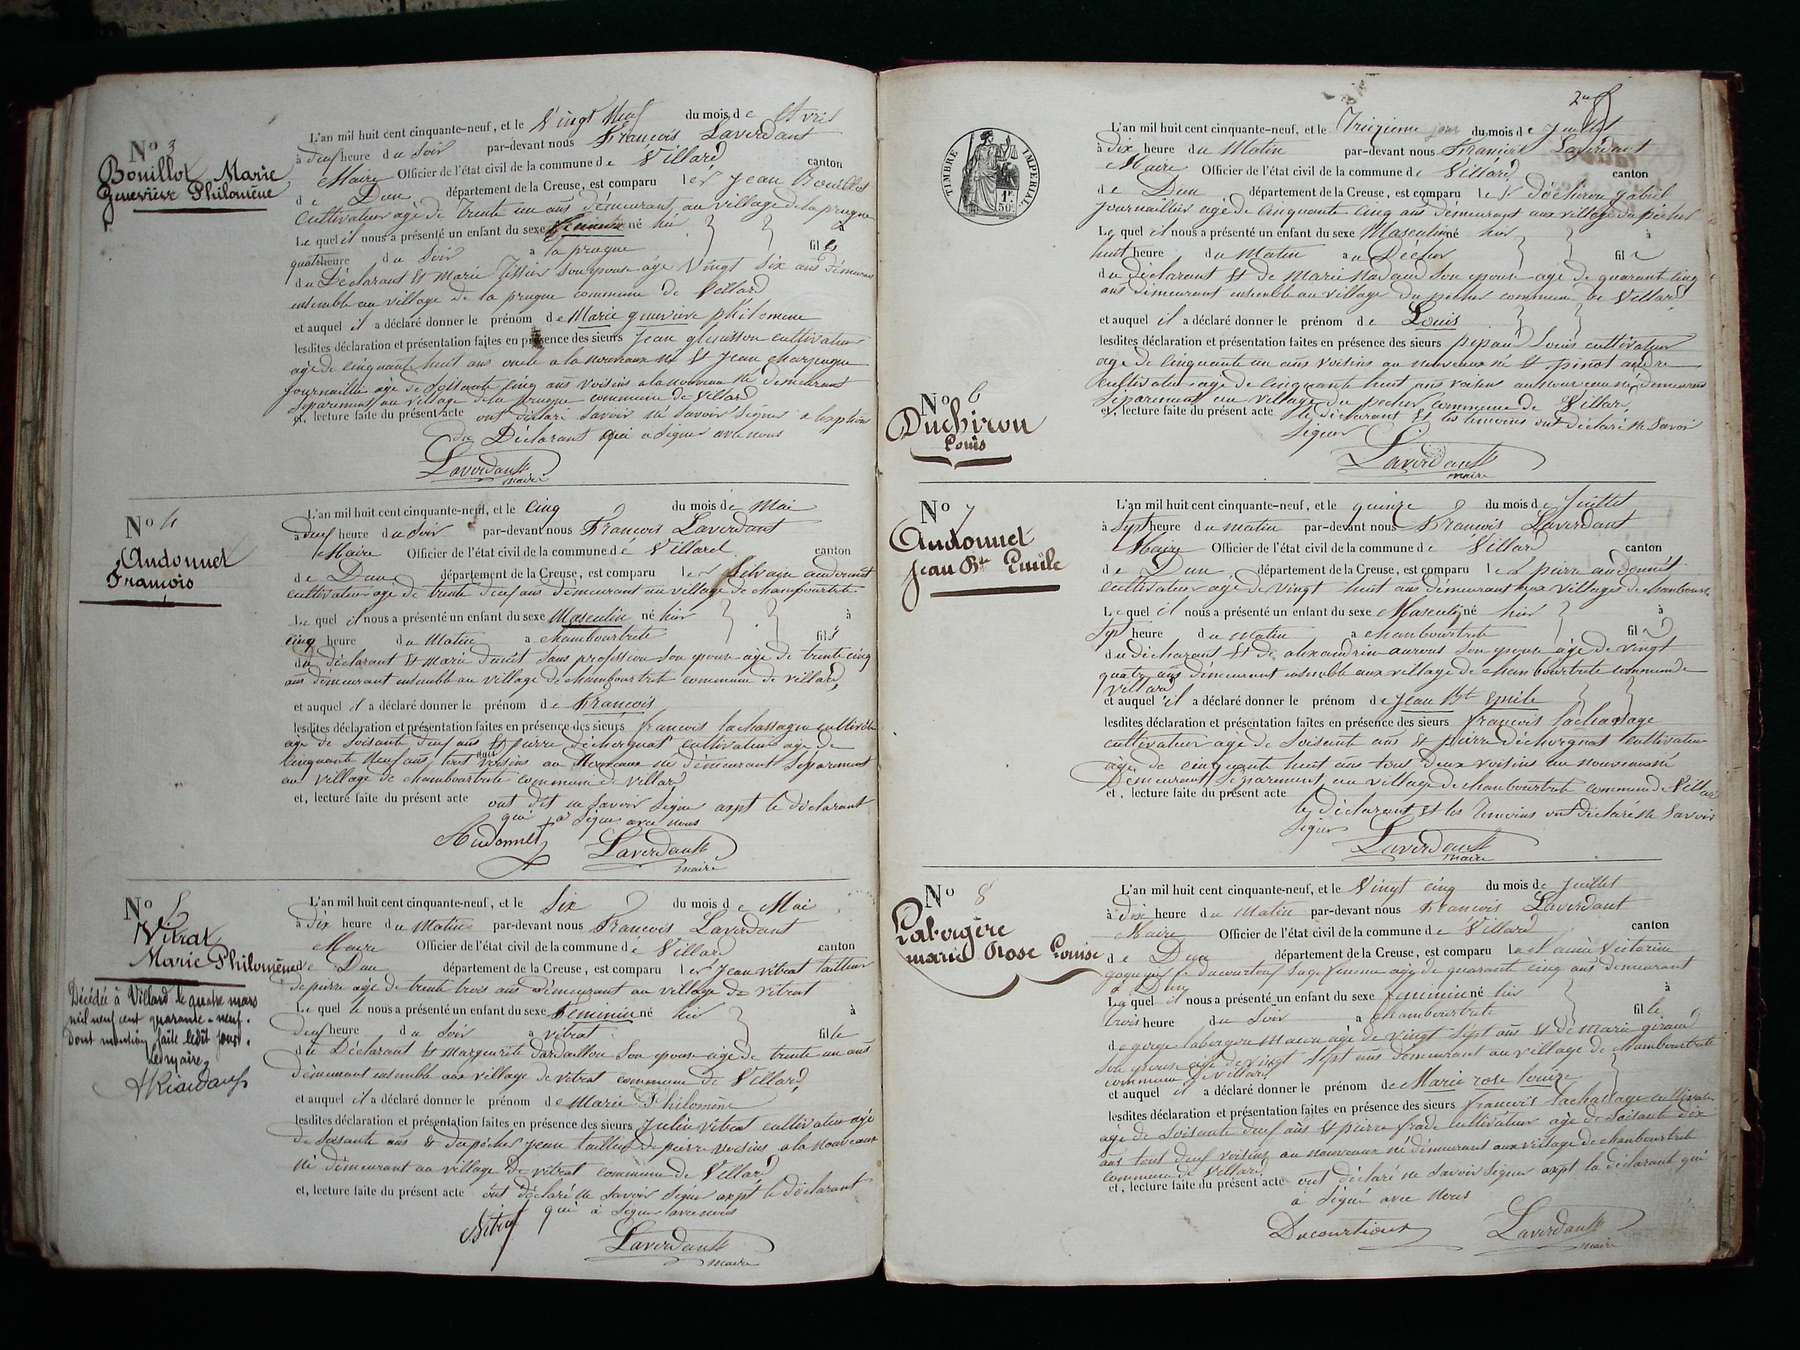 N° 3
Bouillot Marie
Genevieve Philomène
L'an mil huit cent cinquante-neuf, et le Vingt Neuf du mois de Avril
à deuf heure du Soir par-devant nous François Laverdant
Maire Officier de l'état civil de la commune de Villard canton
de Dun département de la Creuse, est comparu le sr Jean Bouillot
cultivateur agé de Trente un ans démeurant au village de la prugne
Le quel il nous a présenté un enfant du sexe féminin né hier à
quatre heure du Soir a la prugne fille
du Déclarant et Marie Tissier son epouse age Vingt Six ans démeurant
ensemble au village de la prugne commune de Villard
et auquel il a déclaré donner le prénom de Marie genevieve philomene
lesdites déclaration et présentation faites en présence des sieurs Jean cultivateur
age de cinquante huit ans oncle a la nouveaux né et Jean
journaillier age de Soisante cinq ans voisins a la nouveau né demeurant
séparément au village de la prugne commune de Villard
et, lecture faite du présent acte ont déclaré savoir ne savoir signer a lexption
du Déclarant qui a signer avec nous
Laverdant
maire
N° 4
Andonnet
François
L'an mil huit cent cinquante-neuf, et le Cinq du mois de Mai
à deuf heure du Soir par-devant nous François Laverdant
Maire Officier de l'état civil de la commune de Villard canton
de Dun département de la Creuse, est comparu le sr Silvain andonnet
cultivateur age de trente deuf ans démeurant au village de chambourtrete
Le quel il nous a présenté un enfant du sexe Masculin né hier à
cinq heure du Matin a chambourtrete fils
du déclarant et Marie sans profession son epouse age de trente cinq
ans démeurant ensemble au village de chambourtrete commune de villard
et auquel il a déclaré donner le prénom de François
lesdites déclaration et présentation faites en présence des sieurs francois lachassagne cultivateur
age de Soisante deuf ans et pierre dechorgnat cultivateur age de
cinquante neuf ans, tout deuf voisins au Nouveaux né démeurant Séparément
au village de chambourtrete commune de villard
et, lecture faite du présent acte ont dit ne savoir signe axpt le déclarant
qui a signe avec nous
Andonnet Laverdant
maire
N° 5
Vitrat
Marie Philomène
Décédée à Villard le quatre mars
mil neuf cent quarante-neuf.
Dont mention faite ledit jour.
Le maire,
L'an mil huit cent cinquante-neuf, et le Six du mois de Mai
à dix heure du Matin par-devant nous François Laverdant
Maire Officier de l'état civil de la commune de Villard canton
de Dun département de la Creuse, est comparu le sr Jean vitrat tailleur
de pierre age de trente trois ans démeurant au village de vitrat
Le quel il nous a présenté un enfant du sexe féminin né hier à
deuf heure du Soir a vitrat fille
du Déclarant et marguerite dardaillon son epouse age de trente un ans
démeurant ensemble aux village de vitrat commune de Villard
et auquel il a déclaré donner le prénom de Marie Philomène
lesdites déclaration et présentation faites en présence des sieurs Julien vitrat cultivateur age
de soisante ans et dupeches jean tailleur de pierre voisins a la nouveaux
né démeurant au village de vitrat commune de Villard
et, lecture faite du présent acte ont déclaré ne savoir signer axpt le déclarant
qui a signer avec nous
Vitrat
Laverdant
maire
2
TIMBRE IMPERIAL
1F.
50C.
N° 6
Duchiron
Louis
L'an mil huit cent cinquante-neuf, et le Treizieme jour du mois de Juillet
à Dix heure du Matin par-devant nous François Laverdant
Maire Officier de l'état civil de la commune de Villard canton
de Dun département de la Creuse, est comparu le sr déchiron gabriel
journaillier age de cinquante cinq ans démeurant aux village du pécher
Le quel il nous a présenté un enfant du sexe Masculin né hier à
huit heure du Matin a Pécher fil
du déclarant et de marie nadaud son epouse age de quarante cinq
ans démeurant ensemble au village du pecher commune de Villard
et auquel il a déclaré donner le prénom de Louis
lesdites déclaration et présentation faites en présence des sieurs pepau Louis cultivateur
age de cinquante un ans voisins au nouveaux né et pinot andre
cultivateur age de cinquante huit ans voisin au nouveau né demeurant
séparement au village du pecher commune de Villard
et, lecture faite du présent acte le déclarant et les temoins ont déclaré ne savoir
signer
Laverdant
maire
N° 7
Andonnet
Jean Bte Emile
L'an mil huit cent cinquante-neuf, et le quinze du mois de Juillet
à Sept heure du matin par-devant nous François Laverdant
Maire Officier de l'état civil de la commune de Villard canton
de Dun département de la Creuse, est comparu le sr pierre andonnet
cultivateur age de vingt huit ans démeurant aux villages de chambourtrete
Le quel il nous a présenté un enfant du sexe Masculin né hier à
Sept heure du matin a chambourtrete fils
du déclarant et de alexandrine aurous son epouse age de vingt
quatre ans démeurant ensemble aux village de chambourtrete commune de
Villard
et auquel il a déclaré donner le prénom de Jean Bte Emile
lesdites déclaration et présentation faites en présence des sieurs françois lachassage
cultivateur age de soisente ans et pierre déchorgnat cultivateur
age de cinquante huit ans tous deux voisins au nouveau né
Démeurant séparement au village de chambourtrete commune de Villard
et, lecture faite du présent acte
le déclarant et les temoins ont déclaré ne savoir
signer
Laverdant
maire
N° 8
Labergère
marie Rose Louise
L'an mil huit cent cinquante-neuf, et le Vingt cinq du mois de Juillet
à Dix heure du Matin par-devant nous François Laverdant
Maire Officier de l'état civil de la commune de Villard canton
de Dun département de la Creuse, est comparu la d anne Victorine
fe ducourtieux sage femme age de quarante cinq ans démeurant
a Dun
La quel il nous a présenté un enfant du sexe feminin né hier à
trois heure du Soir a chambourtrete fille
de george labergere macon age de vingt sept ans et de marie giraud
son epouse age de vingt sept ans démeurant au village de chambourtrete
commune de Villard
et auquel il a déclaré donner le prénom de Marie rose louise
lesdites déclaration et présentation faites en présence des sieurs francois lachassage cultivateur
age de soisante deuf ans et pierre frade cultivateur age de soisante dix
ans tout deuf voisins au nouveaux né démeurant aux village de chambourtrete
commune de Villard
et, lecture faite du présent acte ont déclaré ne savoir signer axpt la déclarante qui
a signé avec nous
Ducourtioux Laverdant
maire